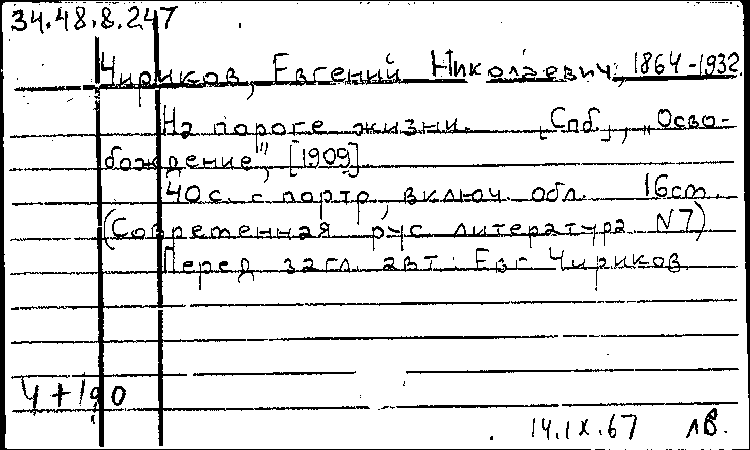 34.48.8.247
Чириков, Евгений Николаевич, 1864-1932.
На пороге жизни. [Спб.], „Осво-
бождение", [1909].
40 с. с портр., включ. обл. 16 cm.
(Современная рус. литература N7)
Перед загл. авт.: Евг. Чириков
Ч+190
14.IX.67 лв.